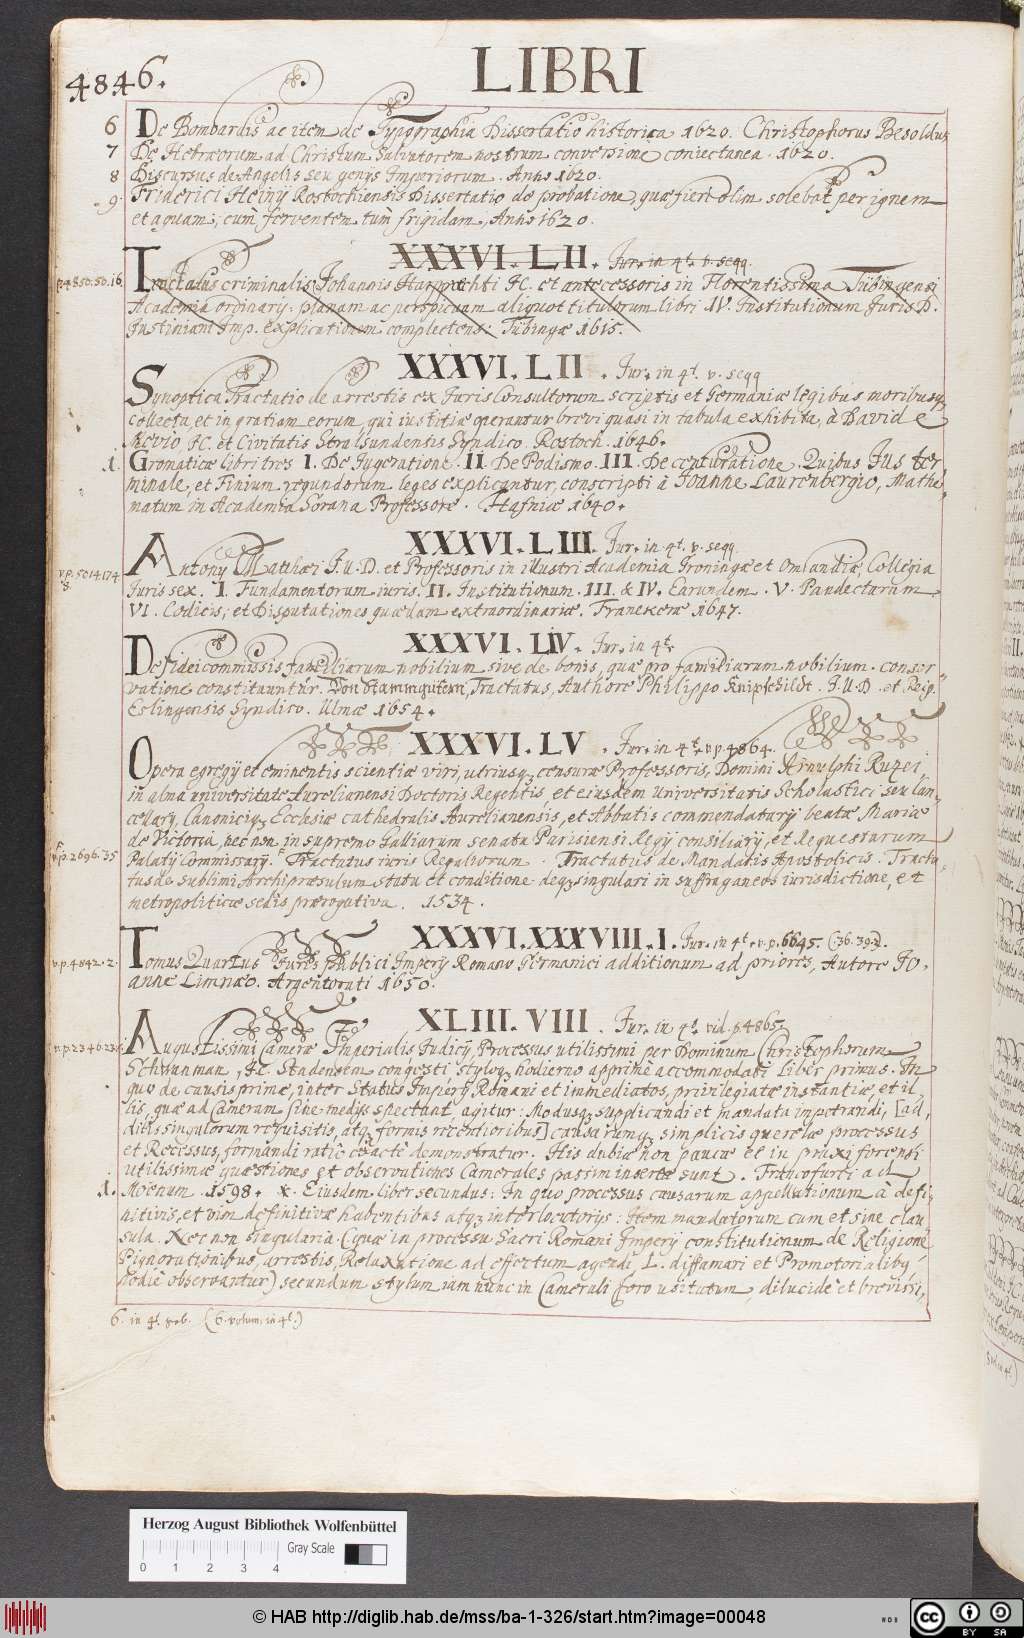 4846.
LIBRI
6 De Bombardis ac item de Typographia Dissertatio historica 1620. Christophorus Besoldus
7 De Hebræorum ad Christum Salvatorem nostrum conversione coniectanea. 1620.
8 Discursus de Angelis seu genys Imperiorum. Anno 1620.
9. Friderici Heinÿ Rostochiensis Dissertatio de probatione, quæ fieri olim solebat per ignem
et aquam, cum ferventem tum frigidam, Anno 1620.
XXXVI. LII. Jur. in 4t. v. seqq.
p. 4850.50.16. Tractatus criminalis Johannis Harpprechti JC. et antecessoris in Florentissima Tubingensi
Academia ordinarÿ. planam ac perspicuam aliquot titulorum libri IV. Institutionum Juris D.
Justiniani Imp. explicationem complectens. Tubingæ 1615.
XXXVI. LII. Jur. in 4t. v. seqq
Synoptica Tractatio de arrestis ex Jurisconsultorum scriptis et Germaniæ legibus moribusq
collecta et in gratiam eorum, qui iustitiæ operantur brevi quasi in tabula exhibita, à Davide
Mevio JC. et Civitatis Stralsundensis Syndico. Rostoch. 1646.
1. Gromaticæ libri tres I. De Jugeratione. II. De Podismo. III. De centuratione. Quibus Jus ter-
minale, et Finium regundorum leges explicantur, conscripti à Joanne Laurenbergio, Mathe-
matum in Academia Sorana Professore. Hafniæ 1640.
XXXVI. LIII. Jur. in 4t. v. seqq.
v.p. 5014.174 8. Antony Matthæi J.U.D. et Professoris in illustri Academia Groningæ et Omlandiæ Collegia
Juris sex. I. Fundamentorum iuris. II. Institutionum. III. & IV. Earundem. V. Pandectarum
VI. Codicis, et Disputationes quædam extraordinariæ. Franekeræ 1647.
XXXVI. LIV. Jur. in 4t.
De fideicommissis familiarum nobilium sive de bonis, quæ pro familiarum nobilium conser-
vatione constituuntur. Von Stammgütern, Tractatus, Authore Philippo Knipschildt. J.U.D. et Reip.
Eslingensis Syndico. Ulmæ 1654.
XXXVI. LV. Jur. in 4t. v p 4864.
Opera egregÿ et eminentis scientiæ viri, utriusq censuræ Professoris, Domini Arnulphi Ruzei,
in alma universitate Aurelianensi Doctoris Regentis, et eiusdem universitatis Scholastici seu Can-
cellarÿ, Canoniciq Ecclesiæ cathedralis Aurelianensis, et Abbatis commendatarÿ beatæ Mariæ
de Victoria, nec non in supremo Galliarum senatu Parisiensi Regÿ consiliarÿ, et Requestarum
v.p. 2696.35 Palatÿ Commissarÿ. Tractatus iuris Regaliorum. Tractatus de Mandatis Apostolicis. Tracta-
tus de sublimi Archipræsulum statu et conditione deq singulari in suffraganeos iurisdictione, et
metropoliticæ sedis prærogativa. 1534.
XXXVI. XXXVIII. I. Jur. in 4t. v. p. 6645. (36.39.2).
v.p. 4842.2. Tomus Quartus Juris publici Imperÿ Romano Germanici additionum ad priores, Autore JO-
anne Limnæo. Argentorati 1650.
XLIII. VIII. Jur. in 4t. vid. p. 4865.
v.p. 2346.23. Augustissimi Cameræ Imperialis Judicÿ, Processus utilissimi per Dominum Christophorum
Schwanman, JC. Stadensem congesti styloq hodierno apprime accommodati Liber primus. In
quo de causis primæ, inter Status Imperÿ Romani et immediatos, privilegiatæ instantiæ, et il-
lis, quæ ad Cameram sine medijs spectant, agitur: Modusq supplicandi et mandata impetrandi, [ad-
ditis singulorum requisitis, atq formis recentioribus] causarumq simplicis querelæ processus
et Recessus, formandi ratio exacte demonstratur. His dubiæ non paucæ et in praxi forensi
utilissimæ quæstiones et observationes Camerales passim insertæ sunt. Francofurti ad
1. Moenum. 1598. * Eiusdem liber secundus: In quo processus causarum appellationum à defi-
nitivis, et vim definitivæ habentibus atq interlocutorÿs: Item mandatorum cum et sine clau-
sula. Nec non singularia (quæ in processu Sacri Romani Imperÿ constitutionum de Religione,
Pignorationibus, arrestis, Relaxatione ad effectum agendi, L. diffamari et Promotorialibq
hodie observantur) secundum stylum iam nunc in Camerali foro usitatum, dilucide et brevissi-
6. in 4t. geb. (6. volum. in 4t.)
Herzog August Bibliothek Wolfenbüttel
Gray Scale
0 1 2 3 4
© HAB http://diglib.hab.de/mss/ba-1-326/start.htm?image=00048
WDB
cc BY SA